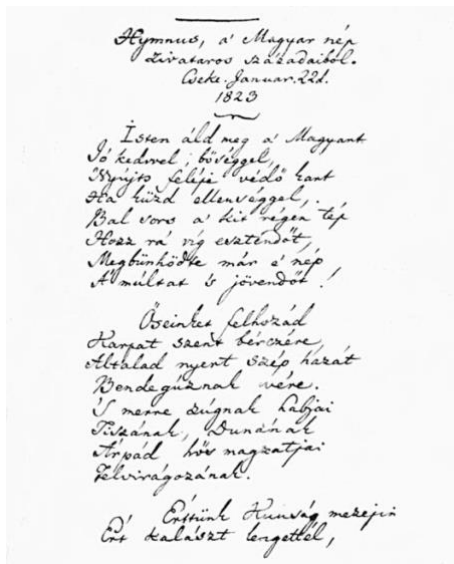 Hymnus, a' Magyar nép
zivataros századaiból.
Cseke. Januar. 22d.
1823
Isten áldd meg a' Magyart
Jó kedvvel, bőséggel,
Nyújts feléje védő kart
Ha küzd ellenséggel,
Bal sors a' kit régen tép
Hozz rá víg esztendőt,
Megbünhödte már e' nép
A' múltat 's jövendőt!
Őseinket felhozád
Kárpát szent bérczére,
Általad nyert szép hazát
Bendegúznak vére.
'S merre zúgnak habjai
Tiszának, Dunának
Árpád hős magzatjai
Felvirágozának.
Értünk Kunság mezején
Ért kalászt lengettél,